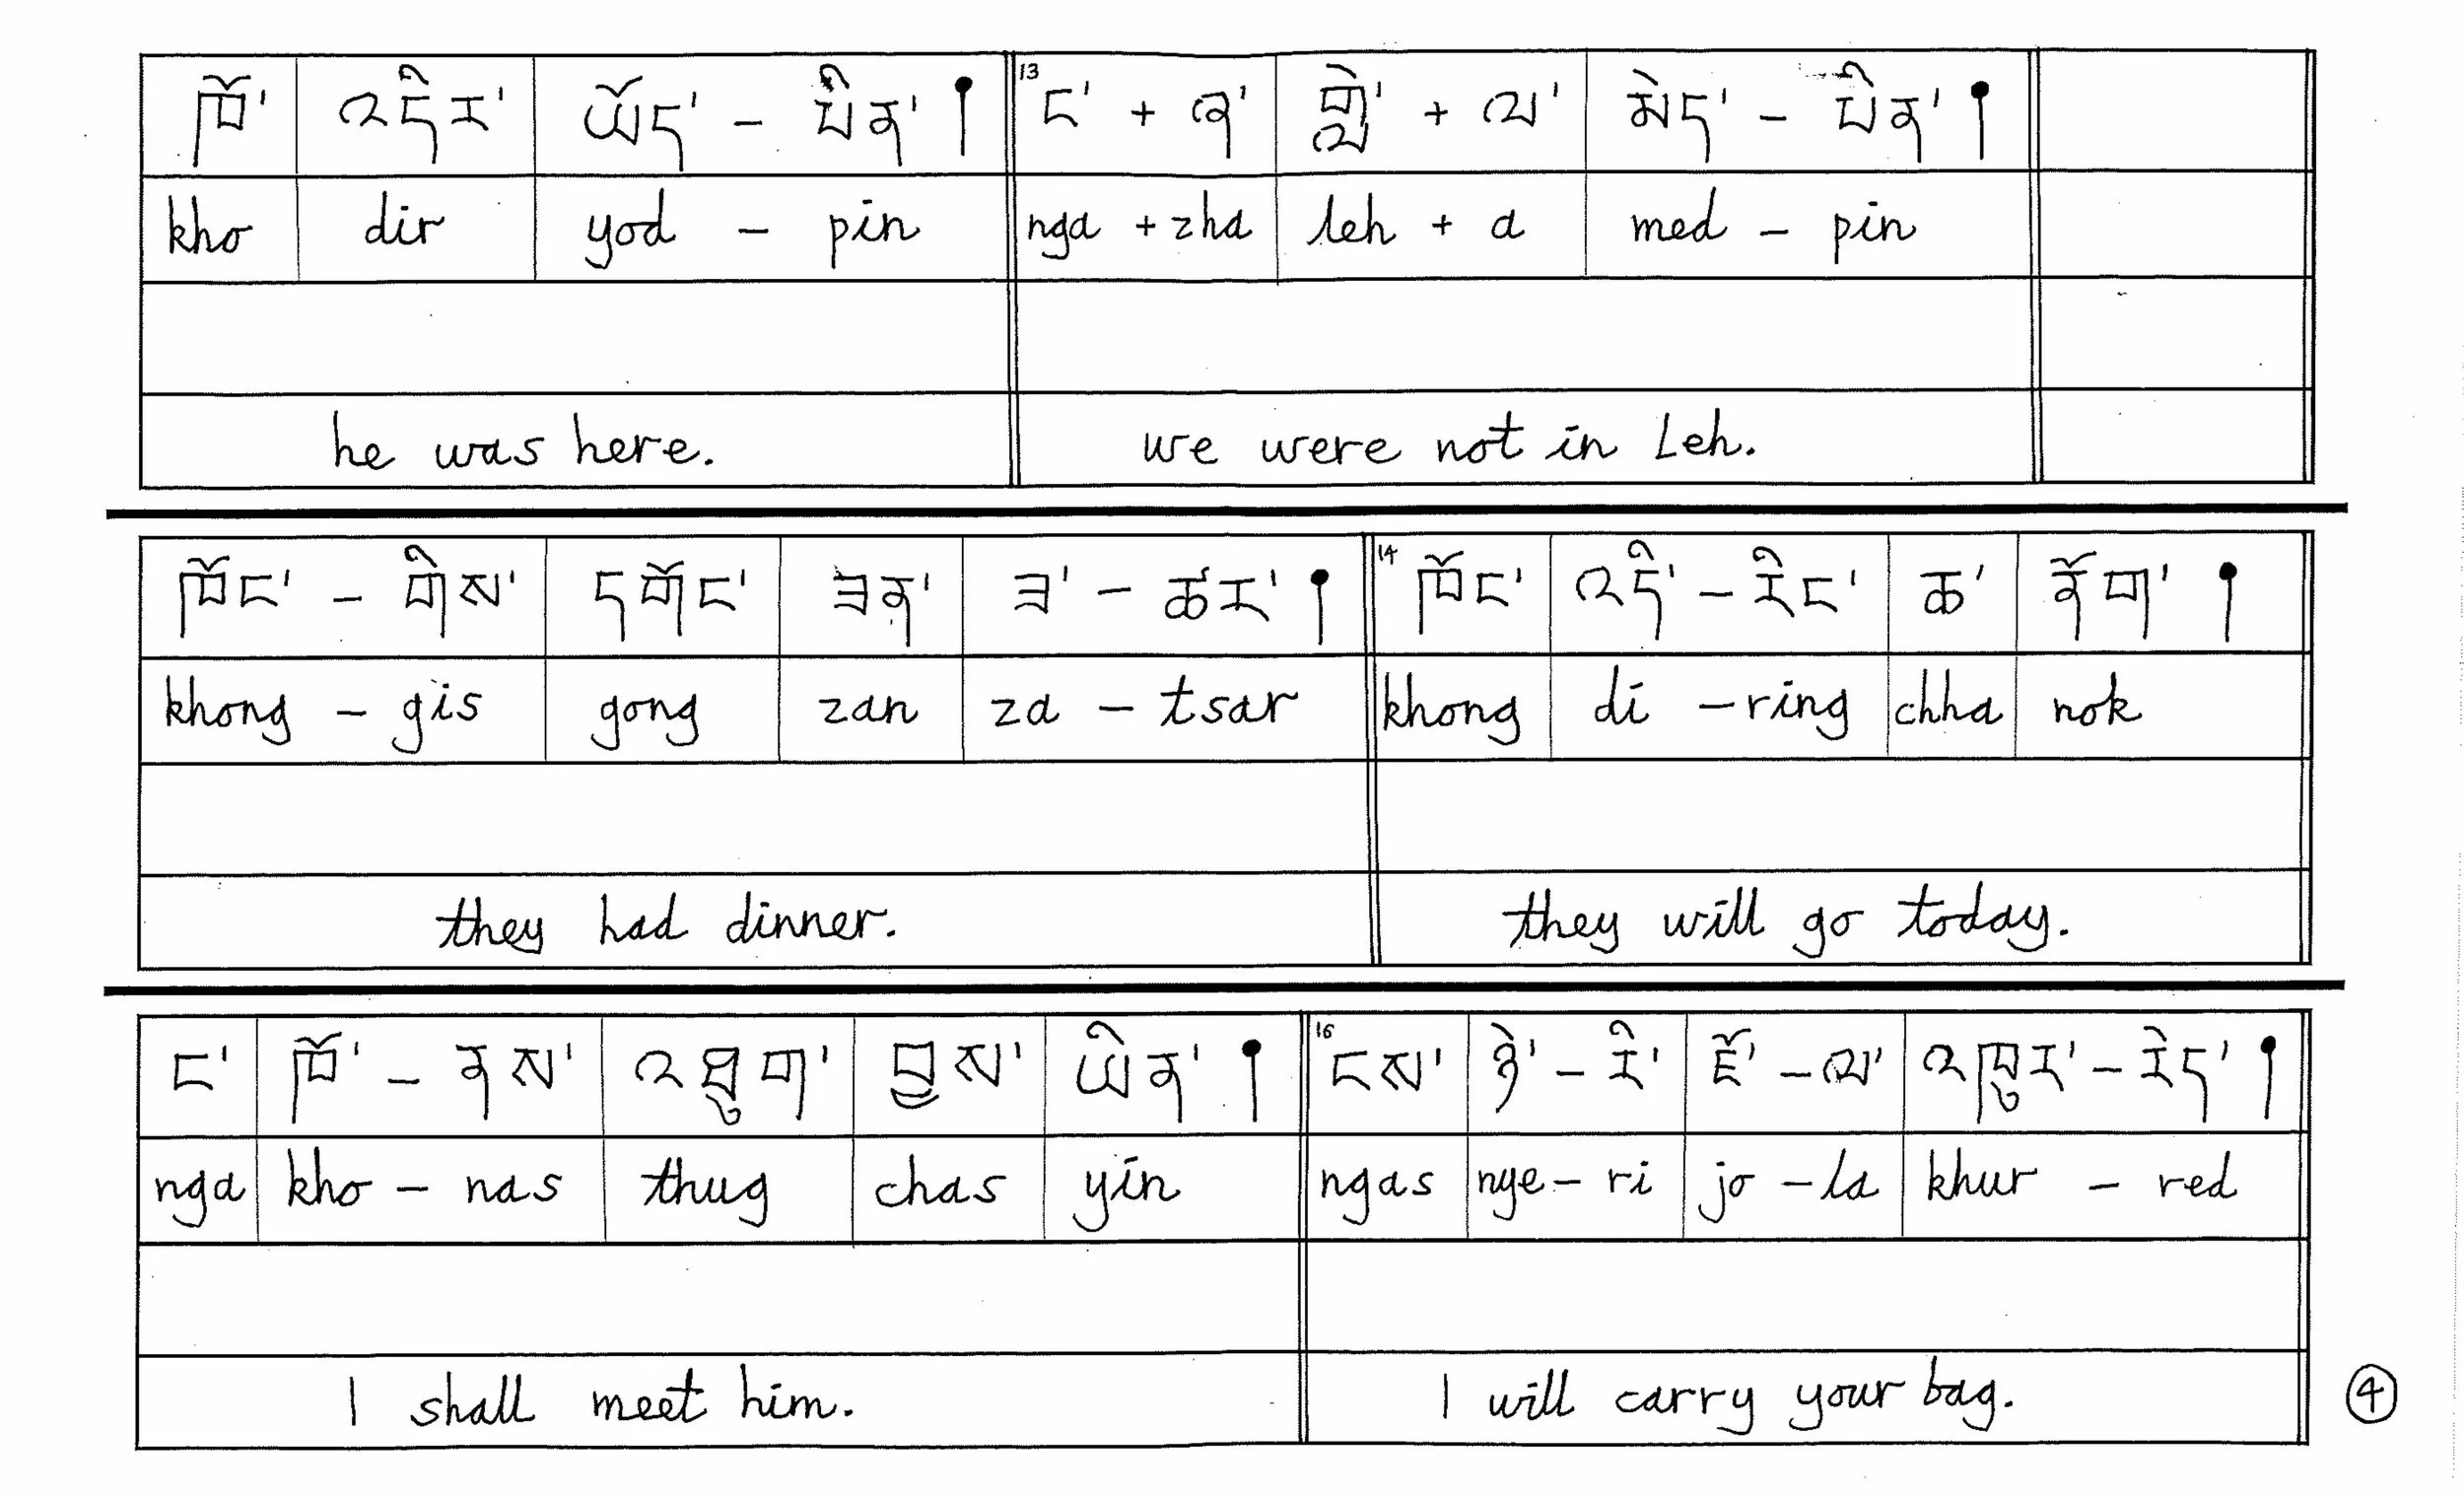 ཁོ་ འདིར་ ཡོད་ - པིན། 13 ང་ + ཞ་ གླེ་ + ལ་ མེད་ - པིན་།
kho dir yod - pin nga + zha leh + a med - pin
he was here. we were not in Leh.
ཁོང་ - གིས་ དགོང་ ཟན་ ཟ་ - ཚར་། 14 ཁོང་ འདི་ - རིང་ ཆ་ ནོག་ །
khong - gis gong zan za - tsar khong di - ring chha nok
they had dinner. they will go today.
ང་ ཁོ་ - ནས་ འཐུག་ བྱས་ ཡིན་ ། 16 ངས་ ཉེ་ - རི་ ཇོ་ - ལ་ འཁུར་ - རེད་།
nga kho - nas thug chas yin ngas nye - ri jo - la khur - red
I shall meet him. I will carry your bag.
4